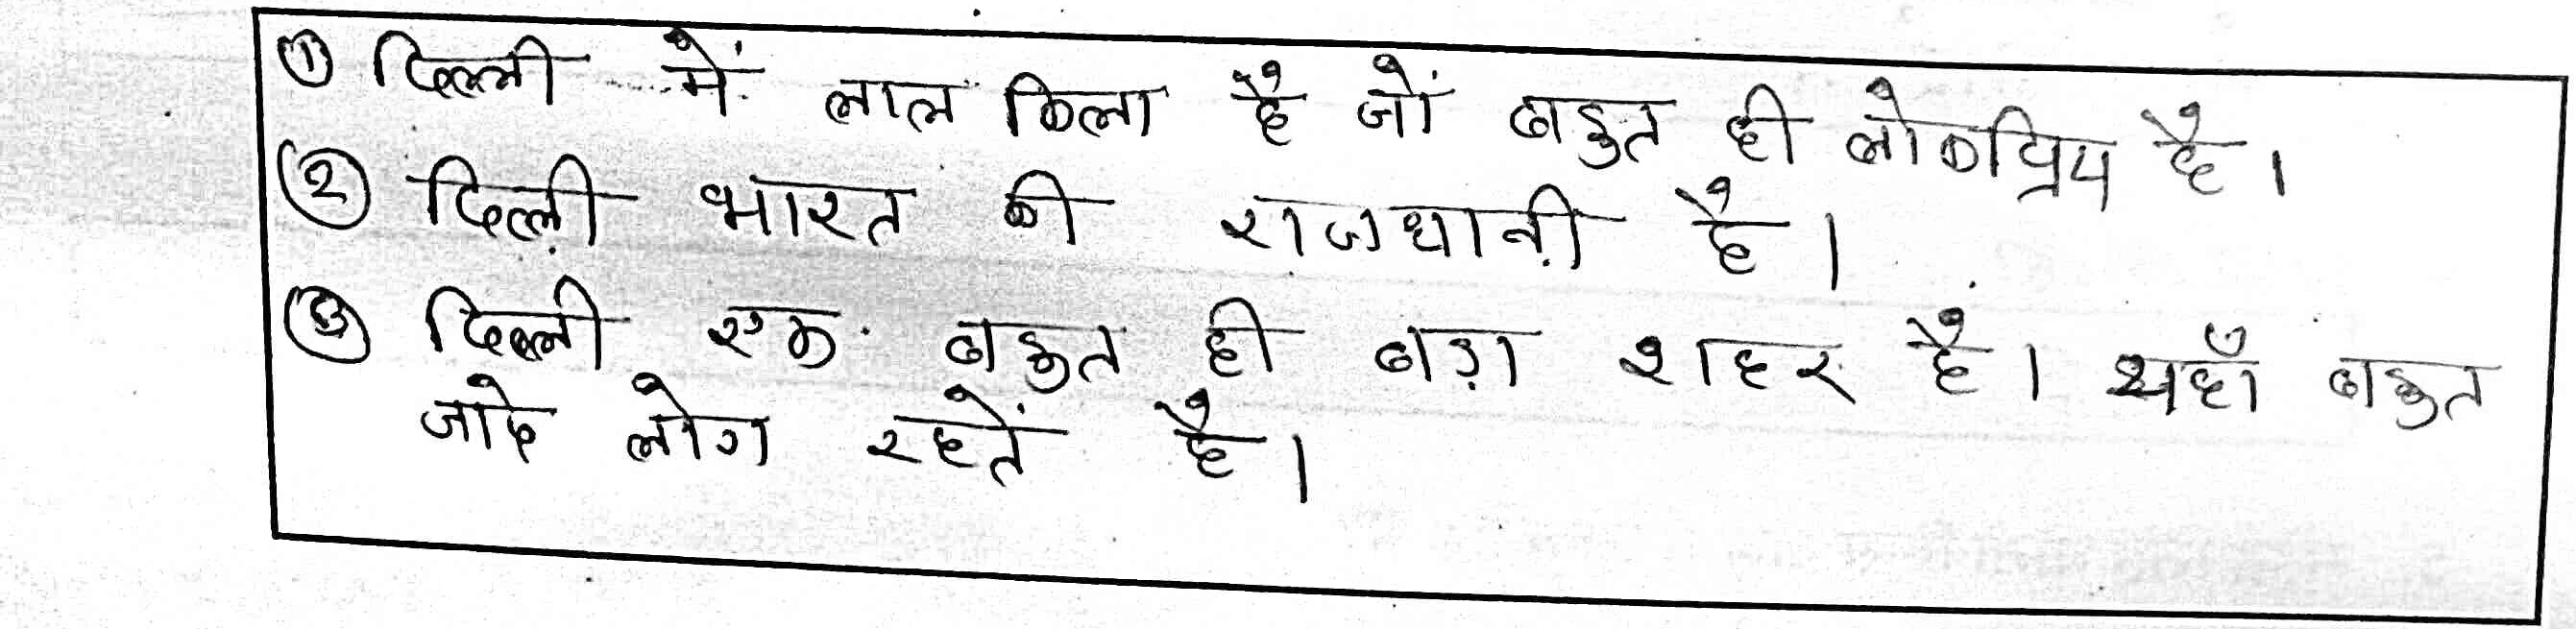 ① दिल्ली में लाल किला है जों बहुत ही लोकप्रिय है।
② दिल्ली भारत की राजधानी है।
③ दिल्ली एक बहुत ही बड़ा शहर है। यहाँ बहुत
जादे लोग रहतें है।